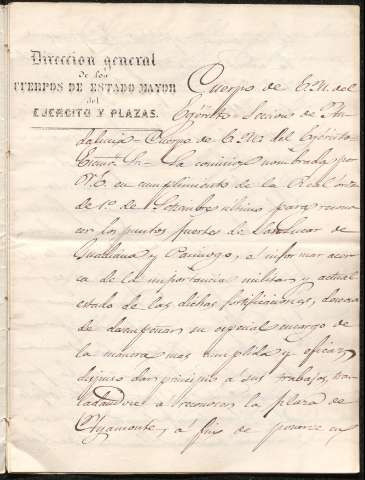 Direccion general
de los
CUERPOS DE ESTADO MAYOR
del
EJERCITO Y PLAZAS.
Cuerpo de E.M. del
Egército - Seccion de An
dalucia - Cuerpo de E.M. del Egército
Excmo Sr. - La comision nombrada por
V.E. en cumplimiento de la Real órden
de 1º de Setiembre último para recono
cer los puntos fuertes de Sanlucar de
Guadiana y Paimogo, é informar acer
ca de la importancia militar y actual
estado de las dichas fortificaciones, deseosa
de desempeñar su especial encargo de
la manera mas cumplida y eficaz,
dispuso dar principio á sus trabajos, tras
ladandose á reconocer la plaza de
Ayamonte, á fin de ponerse en